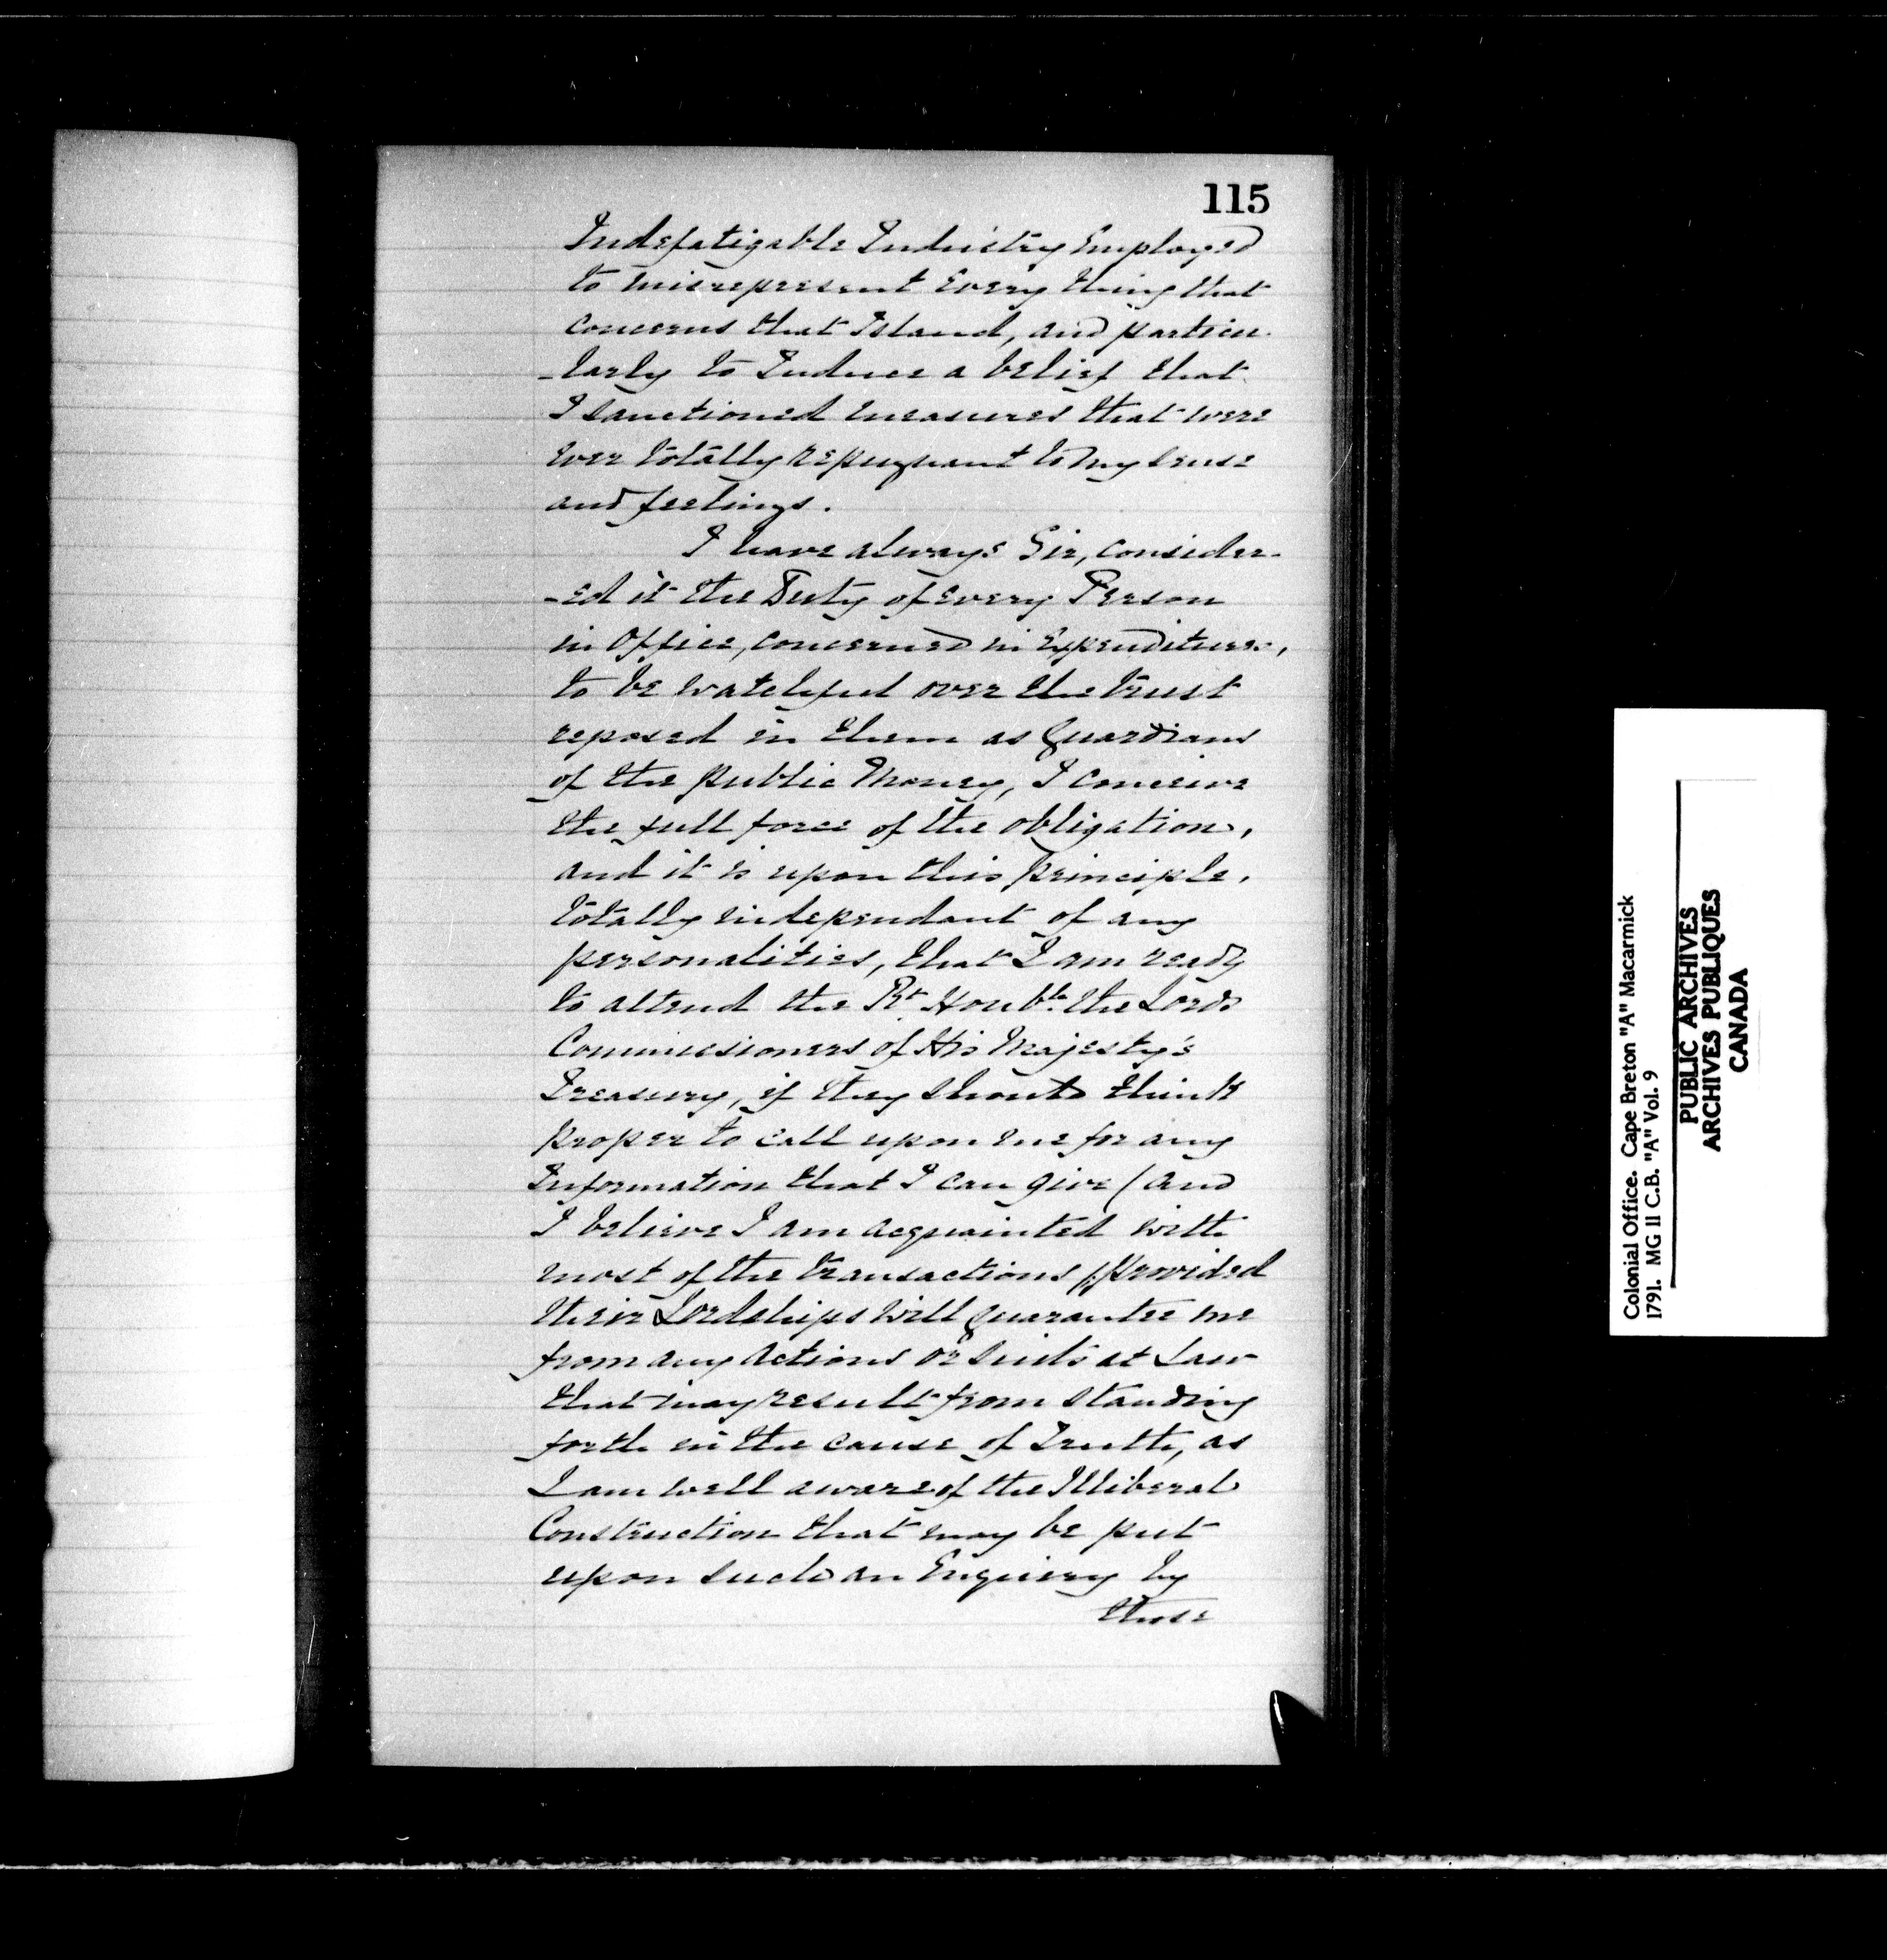 115
Indefatigable Industry Employed
to misrepresent Every thing that
concerns that Island, and particu-
-larly to Induce a belief that
I sanctioned measures that were
ever totally repugnant to my sense
and feelings.
I have always Sir, consider-
-ed it the Duty of every Person
in Office, concerned in Expenditures,
to be watchful over the trust
reposed in them as Guardians
of the public Money, I conceive
the full force of the obligation,
and it is upon this principle,
totally independant of any
personalities, that I am ready
to attend the Rt. Honble. the Lords
Commissioners of His Majesty's
Treasury, if they should think
proper to call upon me for any
Information that I can give (and
I believe I am acquainted with
most of the transactions) provided
their Lordships will guarantee me
from any actions or suits at Law
that may result from standing
forth in the cause of Truth, as
I am well aware of the Illiberal
Construction that may be put
upon such an Enquiry by
those
Colonial Office. Cape Breton "A" Macarmick
1791. MG II C.B. "A" Vol. 9
PUBLIC ARCHIVES
ARCHIVES PUBLIQUES
CANADA